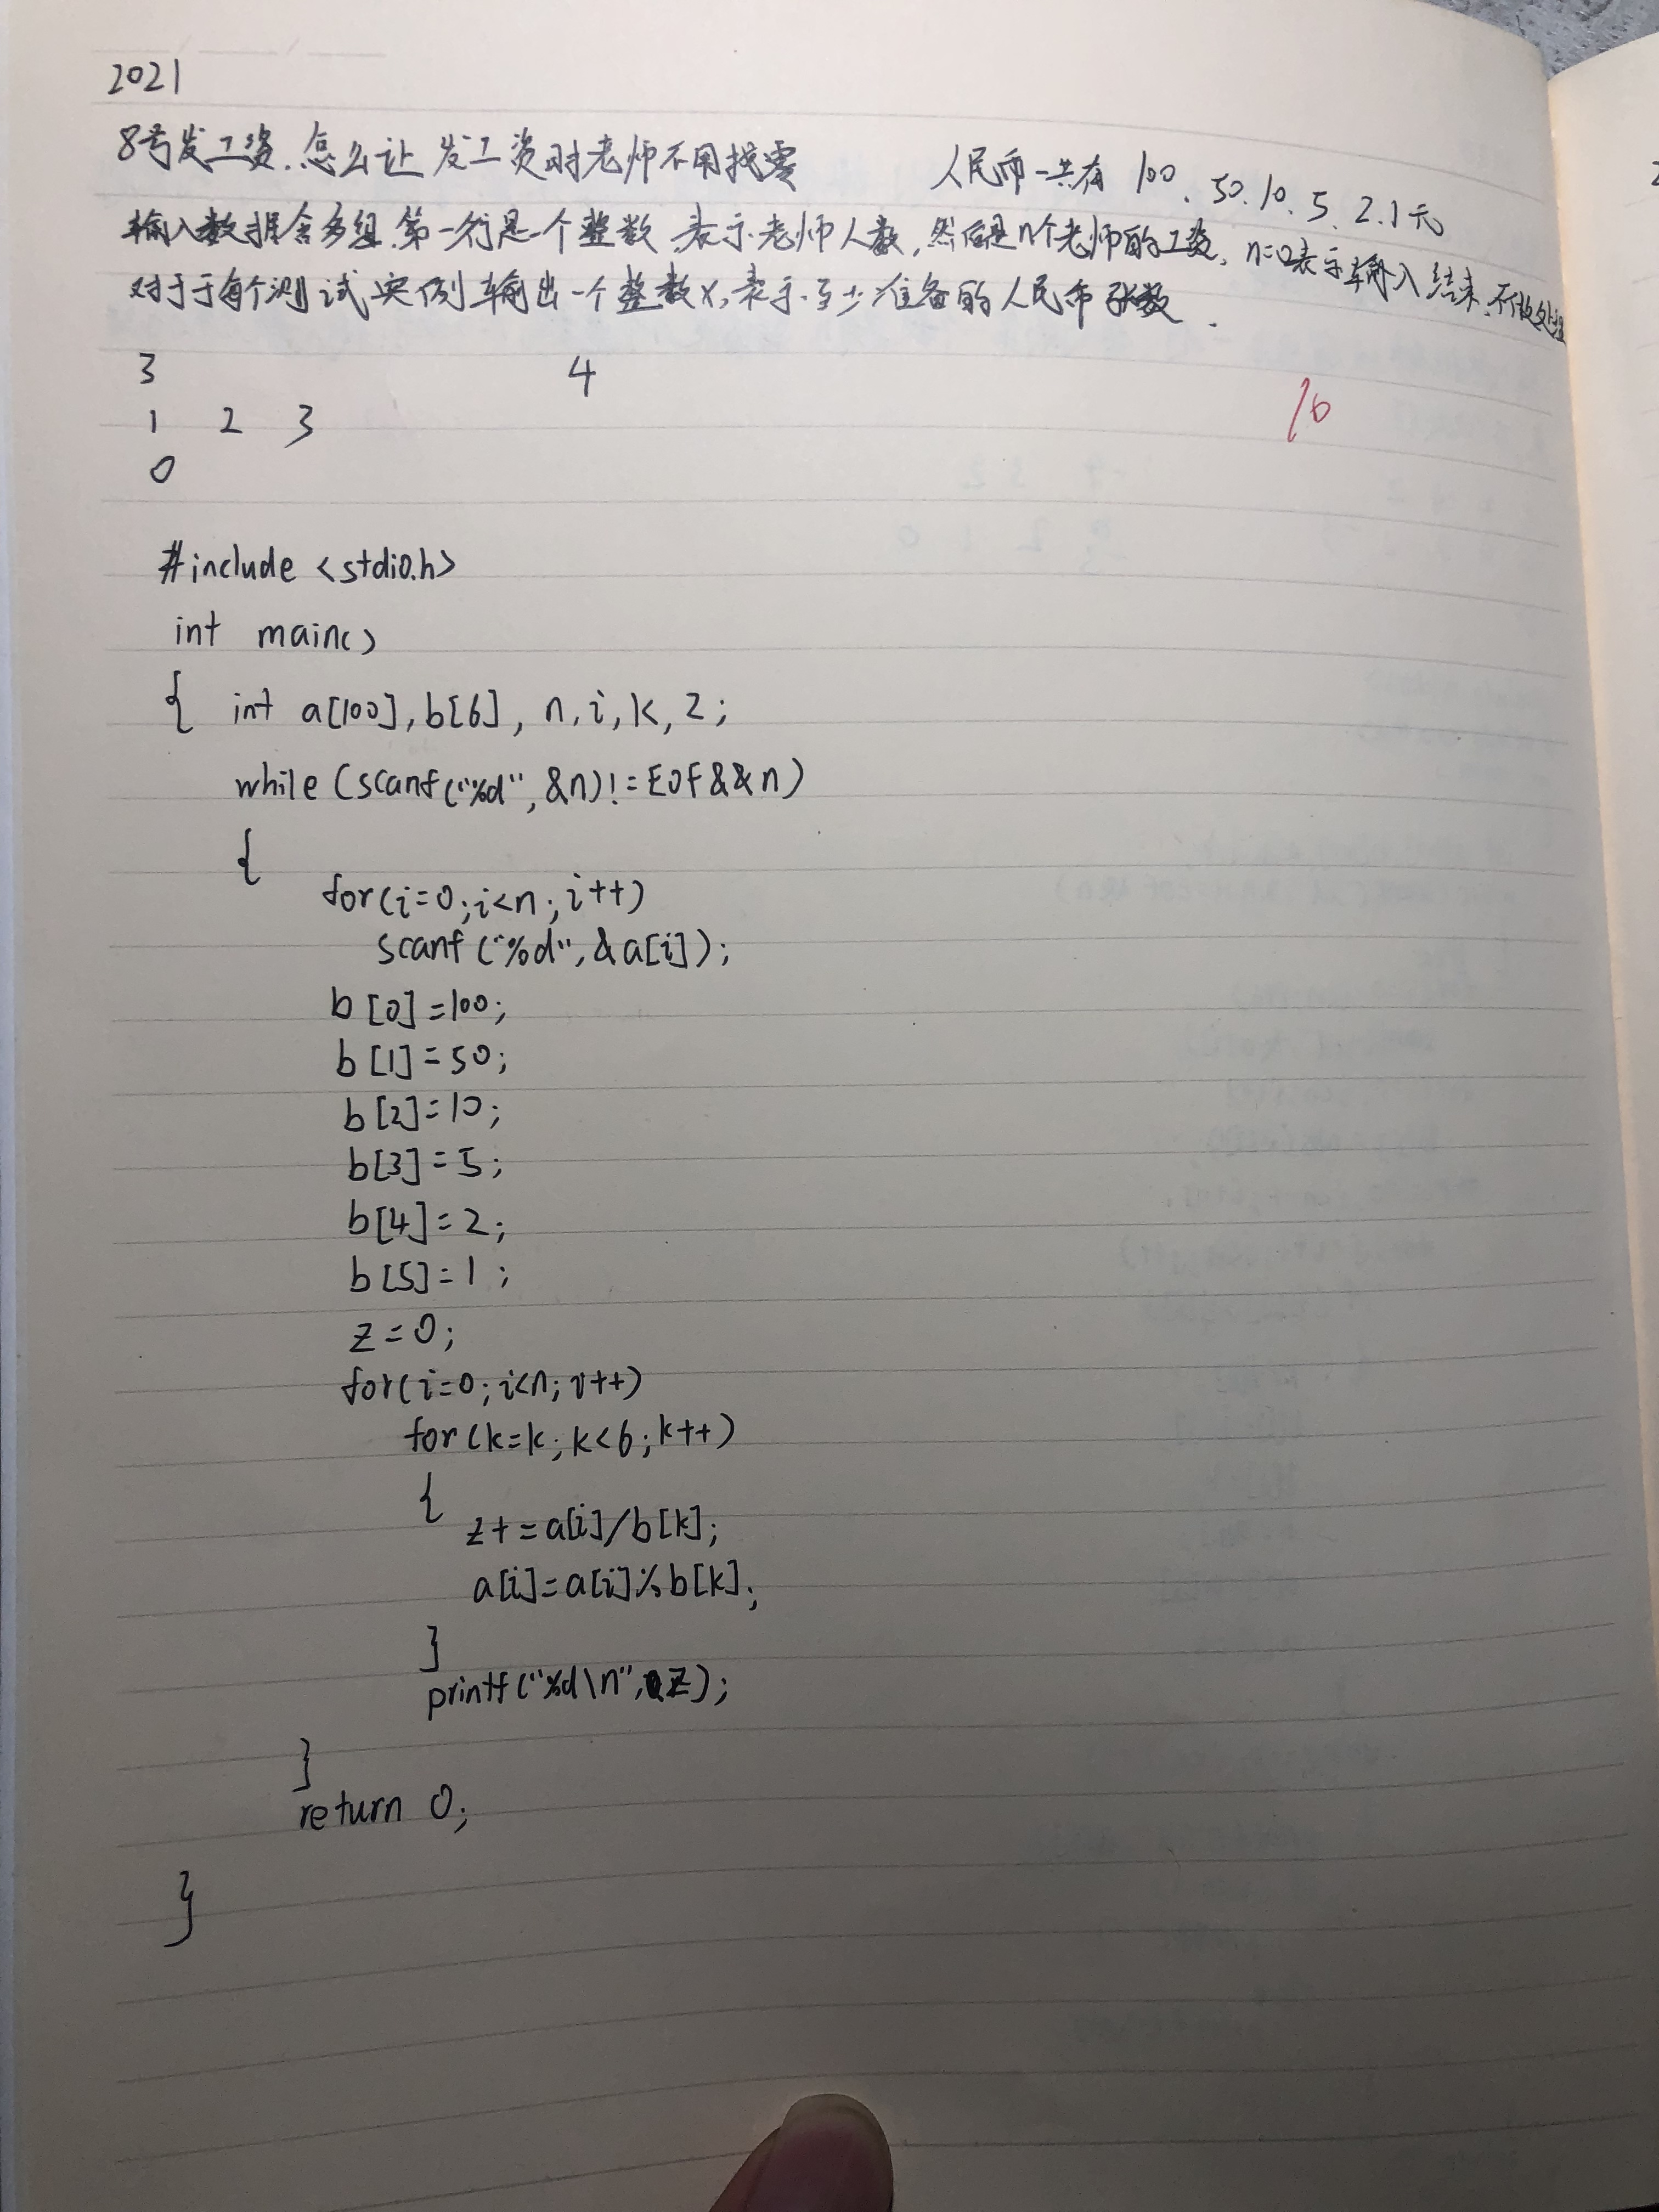 2021
8号发工资.怎么让发工资时老师不用找零 人民币一共有 100、50.10、5、2.1元
输入数据含多组.第一行是一个整数,表示老师人数,然后是n个老师的工资,n=0表示输入结束.不做处理
对于于每个测试实例输出一个整数x,表示至少准备的人民币张数.
3 4
1 2 3
0
16
#include <stdio.h>
int main()
{ int a[100],b[6], n,i,k,z;
while(scanf("%d",&n)!=EOF&&n)
{
for(i=0;i<n;i++)
scanf("%d",&a[i]);
b[0]=100;
b[1]=50;
b[2]=10;
b[3]=5;
b[4]=2;
b[5]=1;
z=0;
for(i=0;i<n;i++)
for(k=k;k<6;k++)
{
z+=a[i]/b[k];
a[i]=a[i]%b[k];
}
printf("%d\n",z);
}
return 0;
}